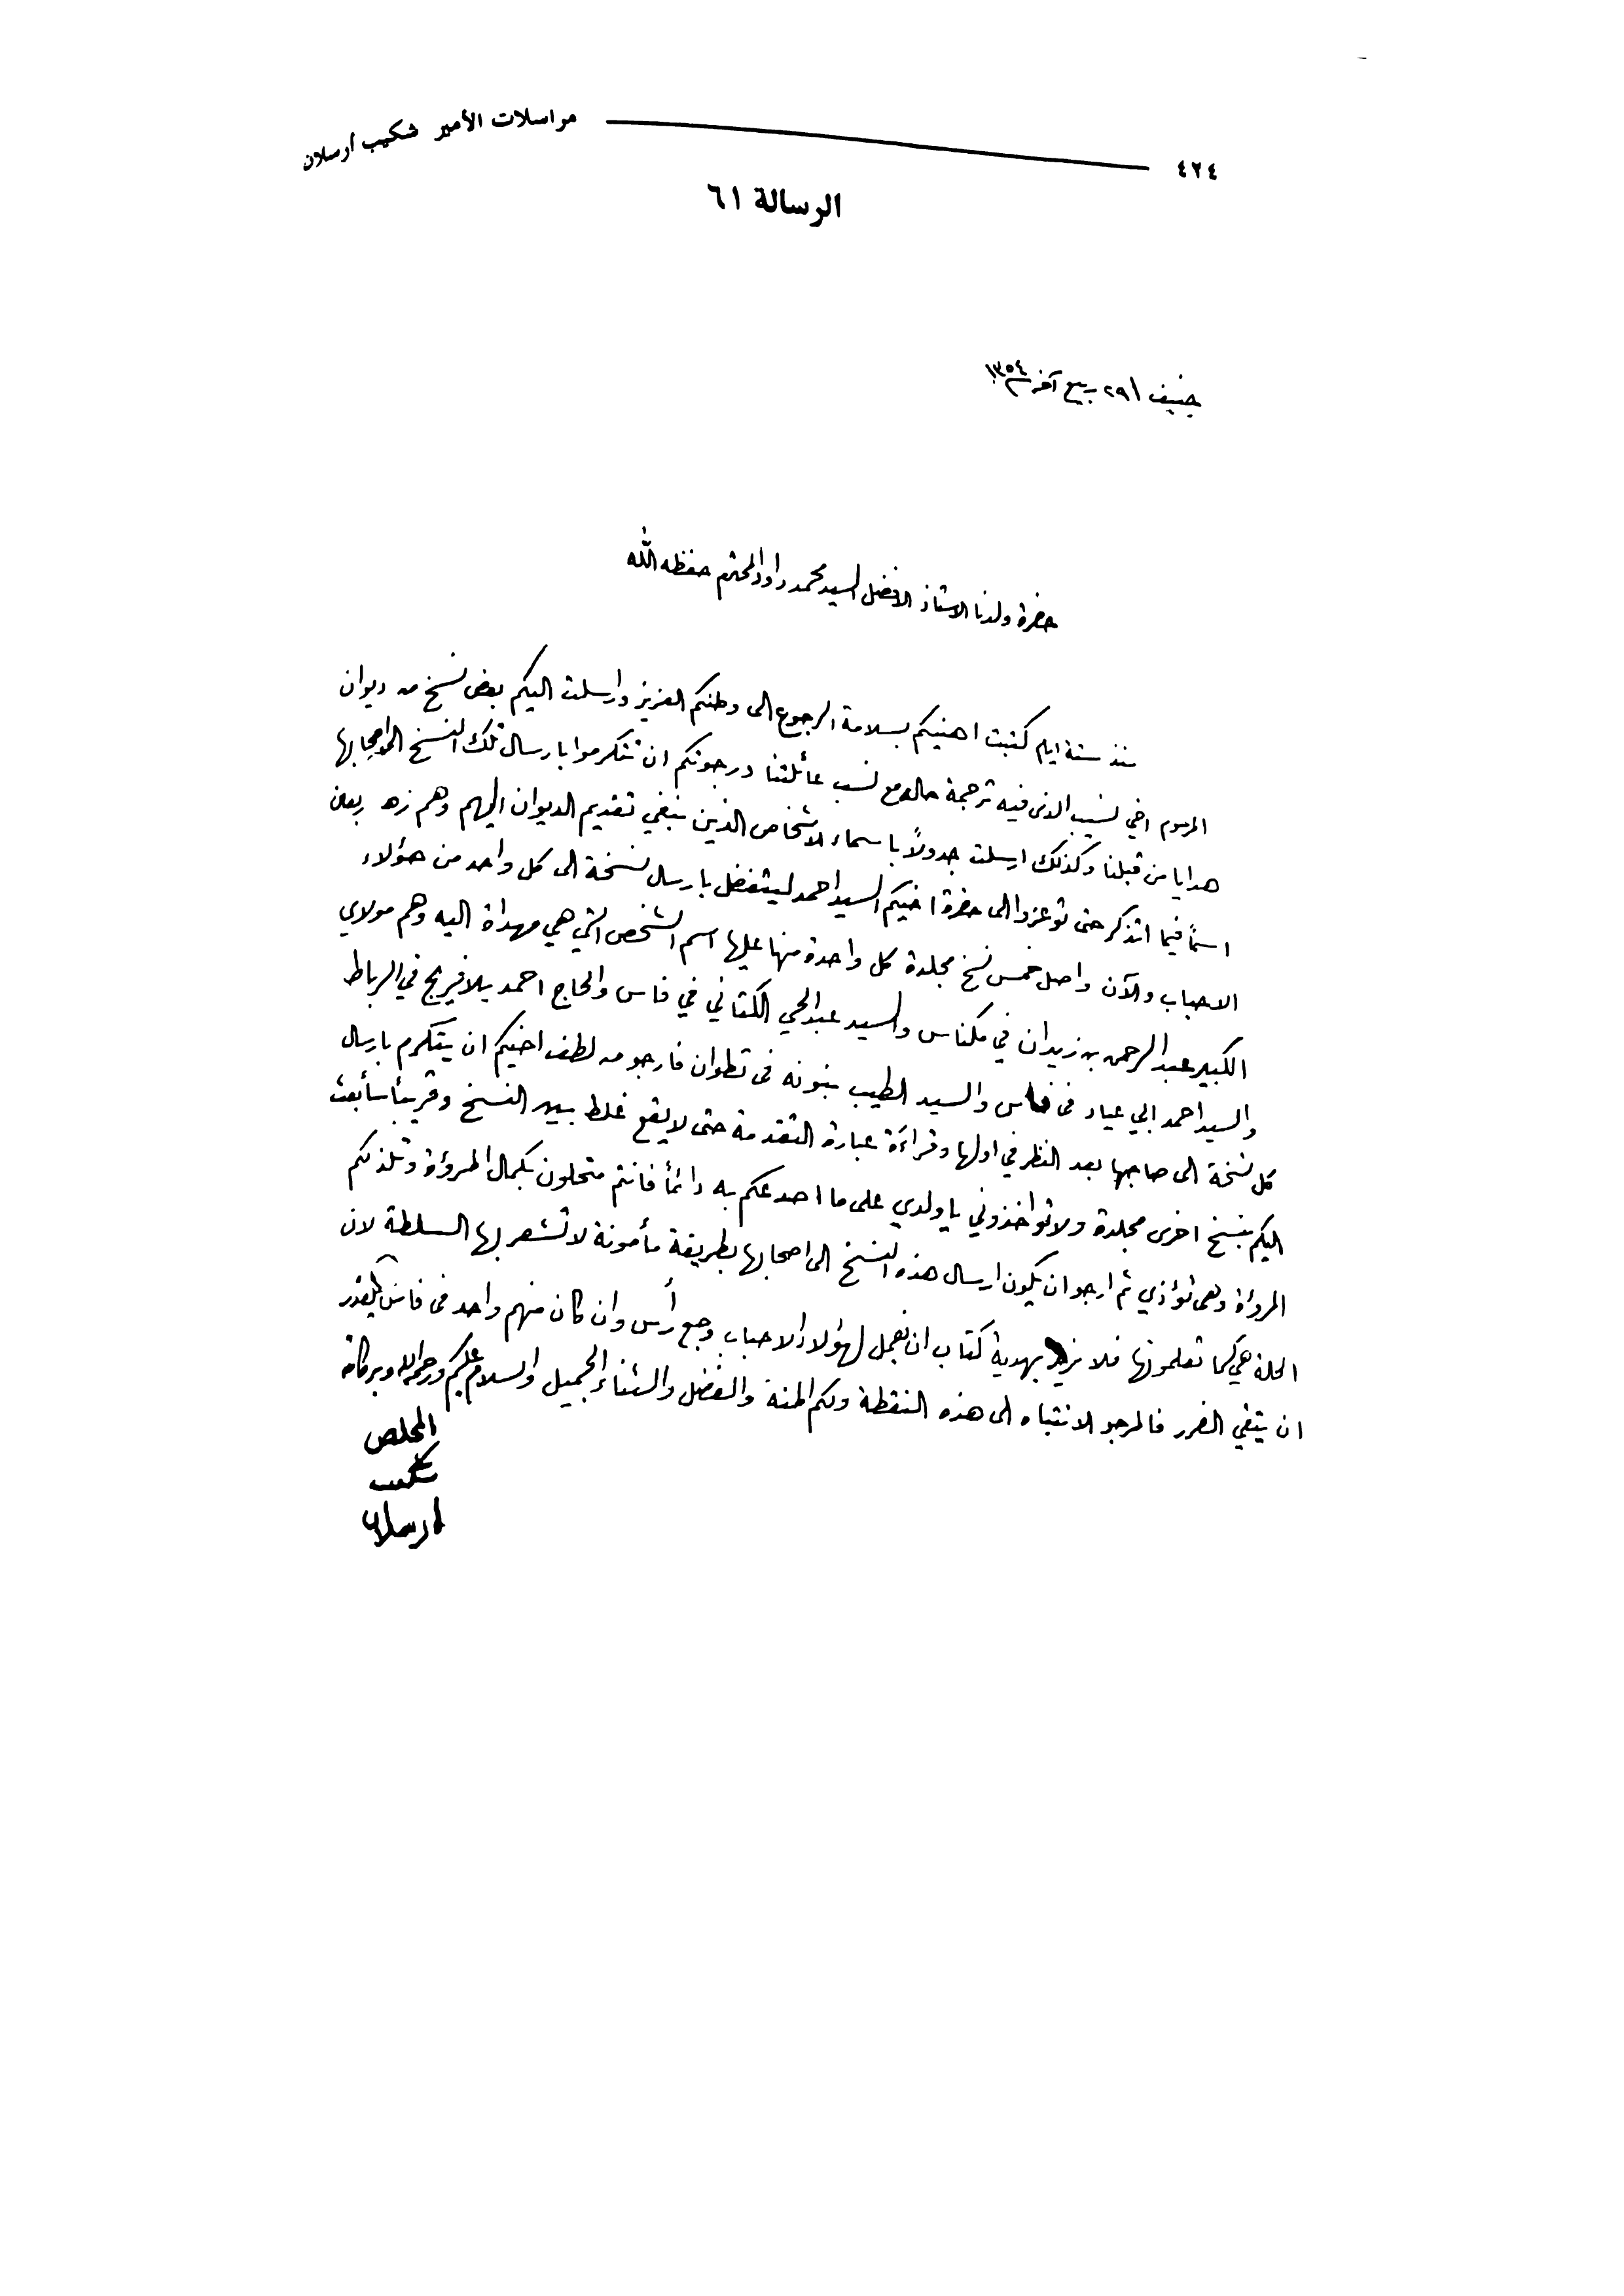 ٤٢٤ مراسلات الأمير شكيب أرسلان
الرسالة ٦١
جنيف ٢٩ ربيع آخر ١٣٥٤
حضرة ولدنا الاستاذ الافضل السيد محمد داود المحترم حفظه الله
منذ ستة ايام كتبت اهنيكم بسلامة الرجوع الى وطنكم العزيز وارسلت اليكم بعض نسخ من ديوان
المرحوم اخي نسيب الذى فيه ترجمة حاله مع نسب عائلتنا ورجوتكم ان تتكرموا بارسال تلك النسخ الى اصحابها
هدايا من قبلنا وكذلك ارسلت جدولاً باسماء الاشخاص الذين ينبغي تقديم الديوان اليهم وهم زهاء اربعين
اسماً فيما اتذكر حتى توعزوا الى حضرة اخيكم السيد احمد ليتفضل بارسال نسخة الى كل واحد من هؤلاء
الاحباب والآن واصل خمس نسخ مجلدة كل واحدة منها عليها اسم الشخص التي هي مهداة اليه وهم مولاي
الكبير عبد الرحمن بن زيدان في مكناس والسيد عبد الحي الكتاني في فاس والحاج احمد بلافريج في الرباط
والسيد احمد ابي عياد في فاس والسيد الطيب بنونه فى تطوان فارجو من لطف اخيكم ان يتكرم بارسال
كل نسخة الى صاحبها بعد النظر في اولها وقراءة عبارة التقدمة حتى لا يقع غلط بين النسخ وقريباً سأبعث
اليكم بنسخ اخرى مجلدة ولا تواخذوني ياولدي على ما اصدعكم به دائماً فانتم متحلون بكمال المروؤة وتلذ لكم
المروأة وهى تؤذي ثم ارجو ان يكون ارسال هذه النسخ الى اصحابها بطريقة مأمونة لا تشعر بها السلطة لان
الحالة هي كما تعلمونها فلا نريد بهدية كتاب ان نعمل لهؤلاء الاحباب وجع رأس وان كان منهم واحد فى فاس يقدر
ان يتقي الضرر فالمرجو الانتباه الى هذه النقطة ولكم المنة والفضل والثناء الجميل والسلام عليكم ورحمة الله وبركاته
المخلص
شكيب
ارسلان